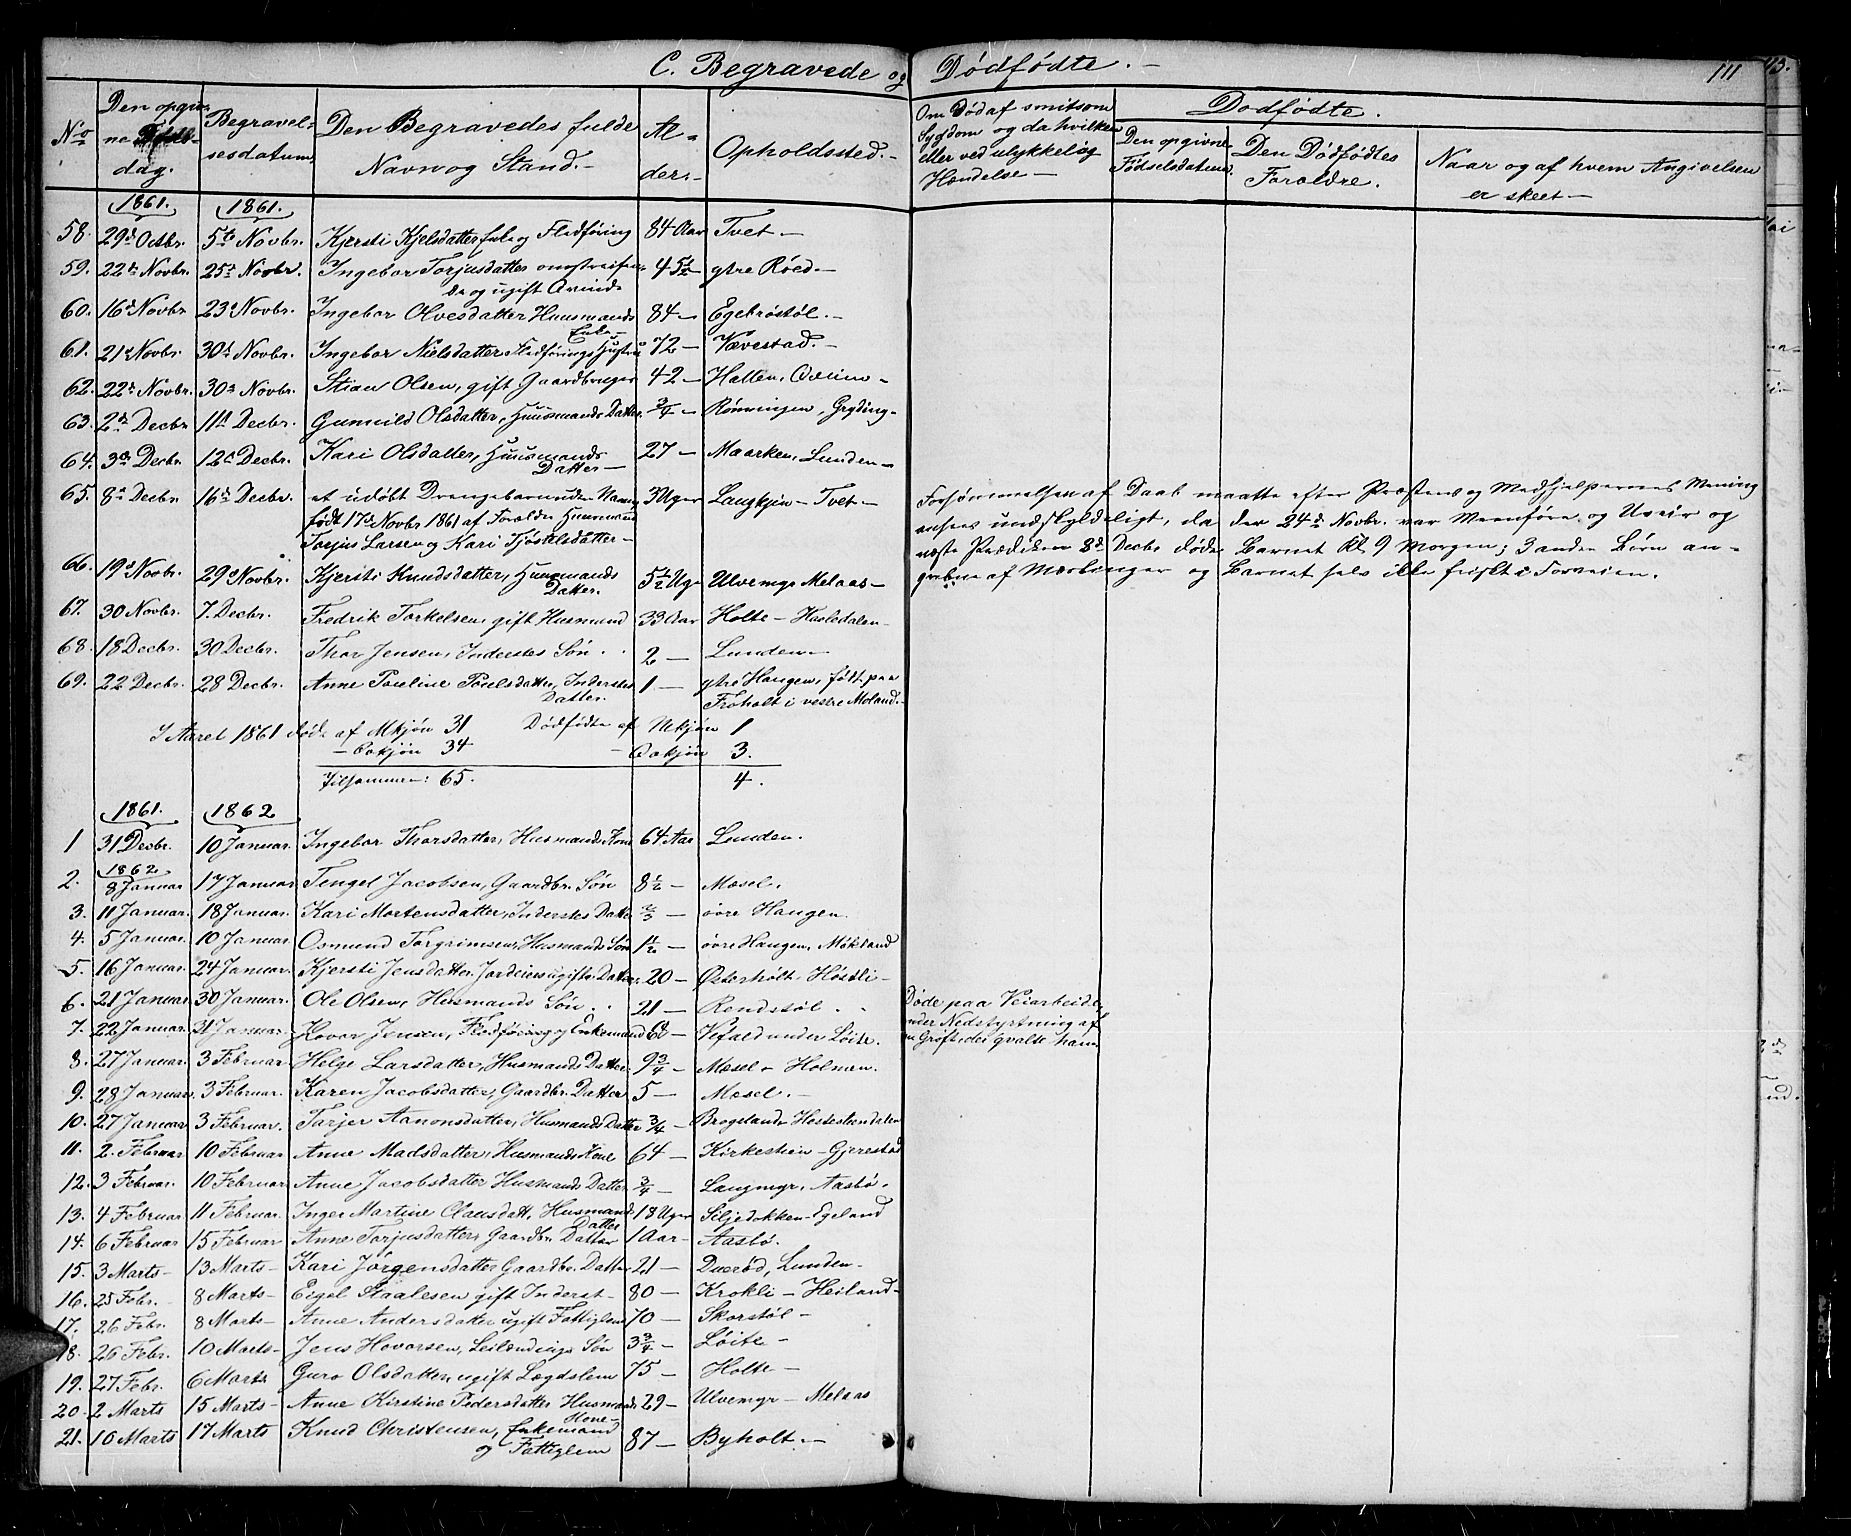 C. Begravede og Dødfødte. — 111
No
Den opgivne Døds-dag.
Begravelsesdatum
Den Begravedes fulde Navn og Stand. —
Al-der. —
Opholdssted. —
Om Død af smitsom Sygdom og da hvilken eller ved ulykkelig Hændelse —
Dødfødte.
Den opgivne Fødselsdatum.
Den Dødfødtes Forældre.
Naar og af hvem Angivelsen er skeet —
1861. 1861.
58. 29d Octbr. 5te Novbr. Kjersti Kjelsdatter Enke og Fledføring 84 Aar Tvet —
59. 22d Novbr. 25d Novbr. Ingebor Torjusdatter omstreifen-
de og ugift Qvinde 45½ — ytre Røed —
60. 16d Novbr 23d Novbr. Ingebor Olvesdatter Huusmands
Enke — 84 — Egebrøstøl. —
61. 21d Novbr. 30d Novbr. Ingebor Nielsdatter Fledførings Hustru 72 — Vævestad. —
62. 22d Novbr. 30d Novbr. Stian Olsen, gift Gaardbruger 42 — Hallen,
63. 2d Decbr 11d Decbr. Gunnild Olsdatter, Huusmands Datter. ¾ — Rønningen, Gryding —
64. 3d Decbr. 12d Decbr. Kari Olsdatter, Huusmands
Datter — 27 — Maarken, Lunden —
65. 8d Decbr. 16d Decbr. et udøbt Drengebarn uden Navn, 3 Uger Langkjin — Tvet —
født 17d Novbr 1861 af Forældre Huusmand
Torjus Larsen og Kari Tjøstelsdatter —
Forsømmelsen af Daab maatte efter Præstens og Medhjelpernes Mening
ansees undskyldeligt, da der 24d Novbr. var Meenføre og Uveir og
næste Prædiken 8d Decbr døde Barnet Kl 9 Morgen; 3 andre Børn an-
grebne af Mæslinger og Barnet selv ikke friskt i Forveien.
66. 19d Novbr. 29d Novbr. Kjersti Knudsdatter, Huusmands
Datter. 5½ Uge Ulvemyr Melaas —
67. 30 Novbr. 7. Decbr. Fredrik Torkelsen, gift Husmand 33 Aar Holte — Hasledalen —
68. 18 Decbr. 30 Decbr. Thor Jensen, Inderstes Søn. 2 — Lunden —
69. 22 Decbr. 28 Decbr. Anne Pouline Poulsdatter, Inderstes
Datter. 1 — ytre Haugen, født paa
Froholt i vestre Moland. —
I Aaret 1861 døde af Mkjøn 31 Dødfødte af Mkjøn 1
— Qvkjøn 34 — Qvkjøn 3.
Tilsammen: 65. 4.
1861. 1862
1 31 Decbr. 10 Januar. Ingebor Thorsdatter, Husmands Kone 64 Aar Lunden.
1862
2. 8 Januar 17 Januar Tengel Jacobsen, Gaardbr. Søn 8½ — Mæsel.
3. 11 Januar. 18 Januar. Kari Mortensdatter, Inderstes Datter ⅔ — øvre Haugen.
4. 5 Januar. 10 Januar. Osmund Torgrimsen, Husmands Søn 1½ — øvre Haugen, Møkland
5. 16 Januar. 24 Januar. Kjersti Jensdatter, Jordeiers ugifte Datter. 20 — Østerholt, Høstli —
6. 21 Januar 30 Januar. Ole Olsen, Husmands Søn. 21 — Rendstøl. Døde paa Veiarbeide,
under Nedstyrtning af
en Grøft, der qvalte ham
7. 22 Januar. 31 Januar. Hovor Jensen, Fledføring og Enkemand 68 — Vefald under Løite.
8. 27 Januar. 3 Februar. Helge Larsdatter, Husmands Datter 9¾ — Mæsel — Holman.
9. 28 Januar. 3 Februar. Karen Jacobsdatter, Gaardbr. Datter 5 — Mæsel. —
10. 27 Januar 3 Februar. Torjer Aanonsdatter, Husmands Datter ¾ — Brogeland,
11. 2. Februar 10 Februar Anne Madsdatter, Husmands Kone 64 — Kirkestien — Gjerestad
12. 3 Februar. 10 Februar Anne Jacobsdatter Husmands Datter ¾ — Langmyr, Aasbø.
13. 4 Februar 11 Februar. Inger Martine Clausdatt, Husmands
Datter 18 Uger Siljedokken — Egeland
14. 6 Februar 15 Februar Anne Torjusdatter, Gaardbr Datter 1 Aar — Aasbø.
15. 3 Marts — 13 Marts — Kari Jørgensdatter Gaardbr. Datter 21 — Duerød, Lunden —
16. 25 Febr. 8 Marts — Eigel Staalesen gift Inderst — 80 — Krokli — Heiland —
17. 26 Febr. 8 Marts — Anne Andersdatter ugift Fattiglem 70 — Skorstøl —
18. 26 Febr. 10 Marts — Jens Hovorsen, Leilændings Søn 3¾ — Løite —
19. 27 Febr. 6 Marts Guro Olsdatter, ugift Lægdslem 75 — Holte —
20. 2 Marts 15 Marts — Anne Kirstine Pedersdatter Husmands
Kone — 29 — Ulvemyr — Melaas
21. 10 Marts 17 Marts Knud Christensen, Enkemand
og Fattiglem 87 — Byholt. —